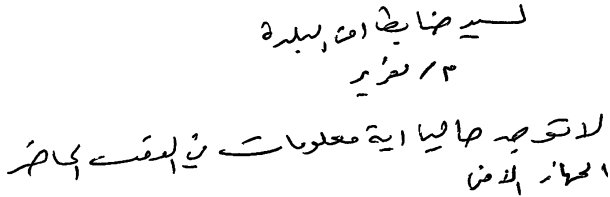 لسيد ضابط امن البلدة
م/ تقرير
لا توجد حاليا اية معلومات في الوقت الحاضر
الجهاز الأمني